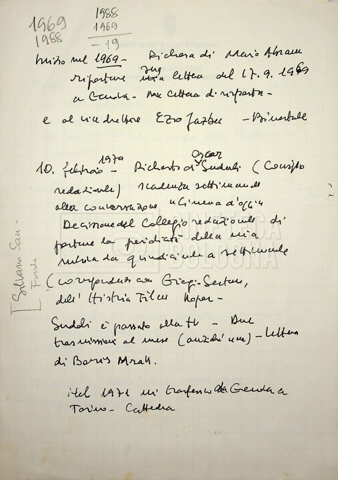 1969
1988
1988
1969
- 19
Inizio nel 1969 - Richiesta di Mario Abram
riportare mia lettera del 17.9.1969
a Genova - sua lettera di risposta -
e al vice direttore Ezio
10. febbraio 1970 - Richiesta di Oscar Suduli (Consiglio
redazionale) scadenza settimanale
alla conversazione "Cinema d'oggi"
Decisione del Collegio redazionale di
portare la periodicità della mia
rubrica da quindicinale a settimanale
(corrispondenza con
dell'Histria Film Koper -
Suduli è passato alla tv - Due
trasmissioni al mese (anziché una) - lettera
di Boris Mrak.
Nel 1971 mi trasferisco da Genova a
Torino - Cattedra
Silvano Sau -